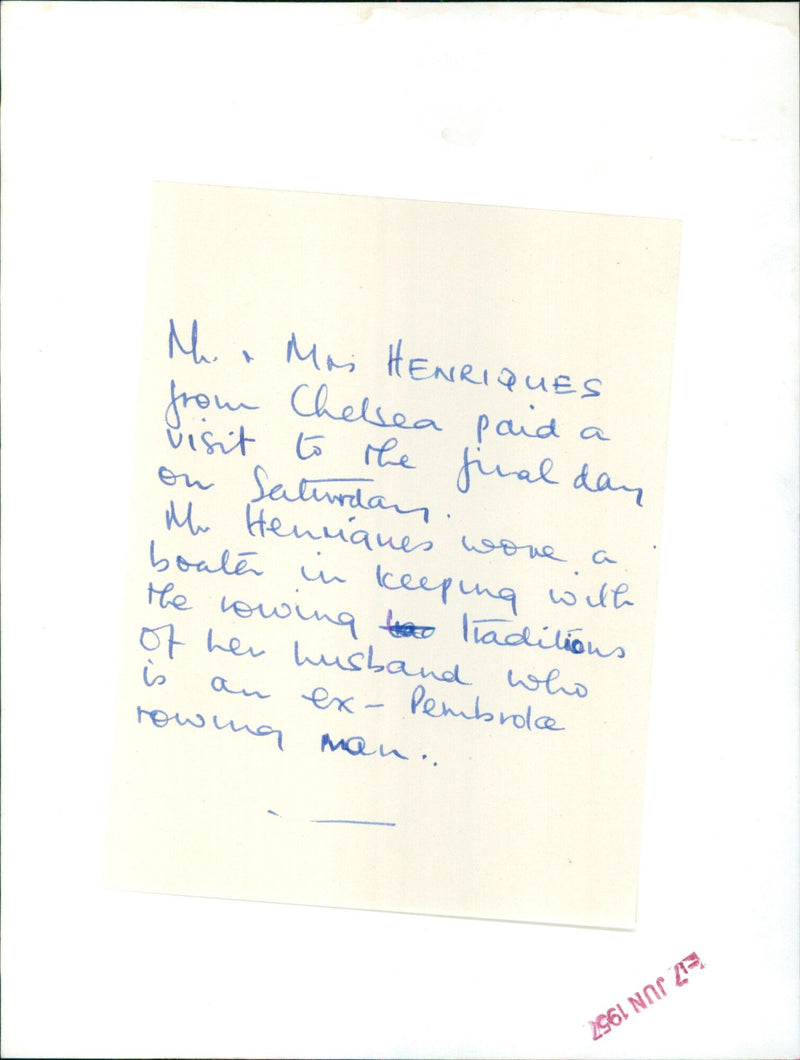 Mr. + Mrs HENRIQUES
from Chelsea paid a
visit to the final day
on Saturday.
Mr Henriques wore a
boater in keeping with
the rowing traditions
of her husband who
is an ex-Pembroke
rowing man..
17 JUN 1957